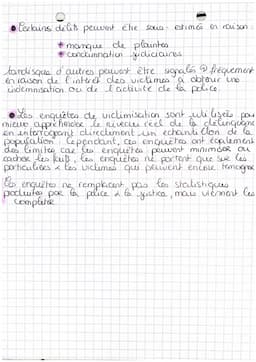 ● Certains délits peuvent être sous-estimés en raison :
* manque de plaintes
* condamnation judiciaires
tandisque d'autres peuvent être signalés fréquemment
en raison de l'intérêt des victimes à obtenir une
indemnisation ou de l'activité de la police.
● Les enquêtes de victimisation sont utilisées pour
mieux appréhender le niveau réel de la délinquance
en interrogeant directement un échantillon de la
population. Cependant, ces enquêtes ont également
des limites car les enquêtés peuvent minimiser ou
cacher les faits, les enquêtes ne portent que sur les
particuliers & les victimes qui peuvent encore témoigner
Ces enquêtes ne remplacent pas les statistiques
produites par la police & la justice, mais viennent les
compléter.